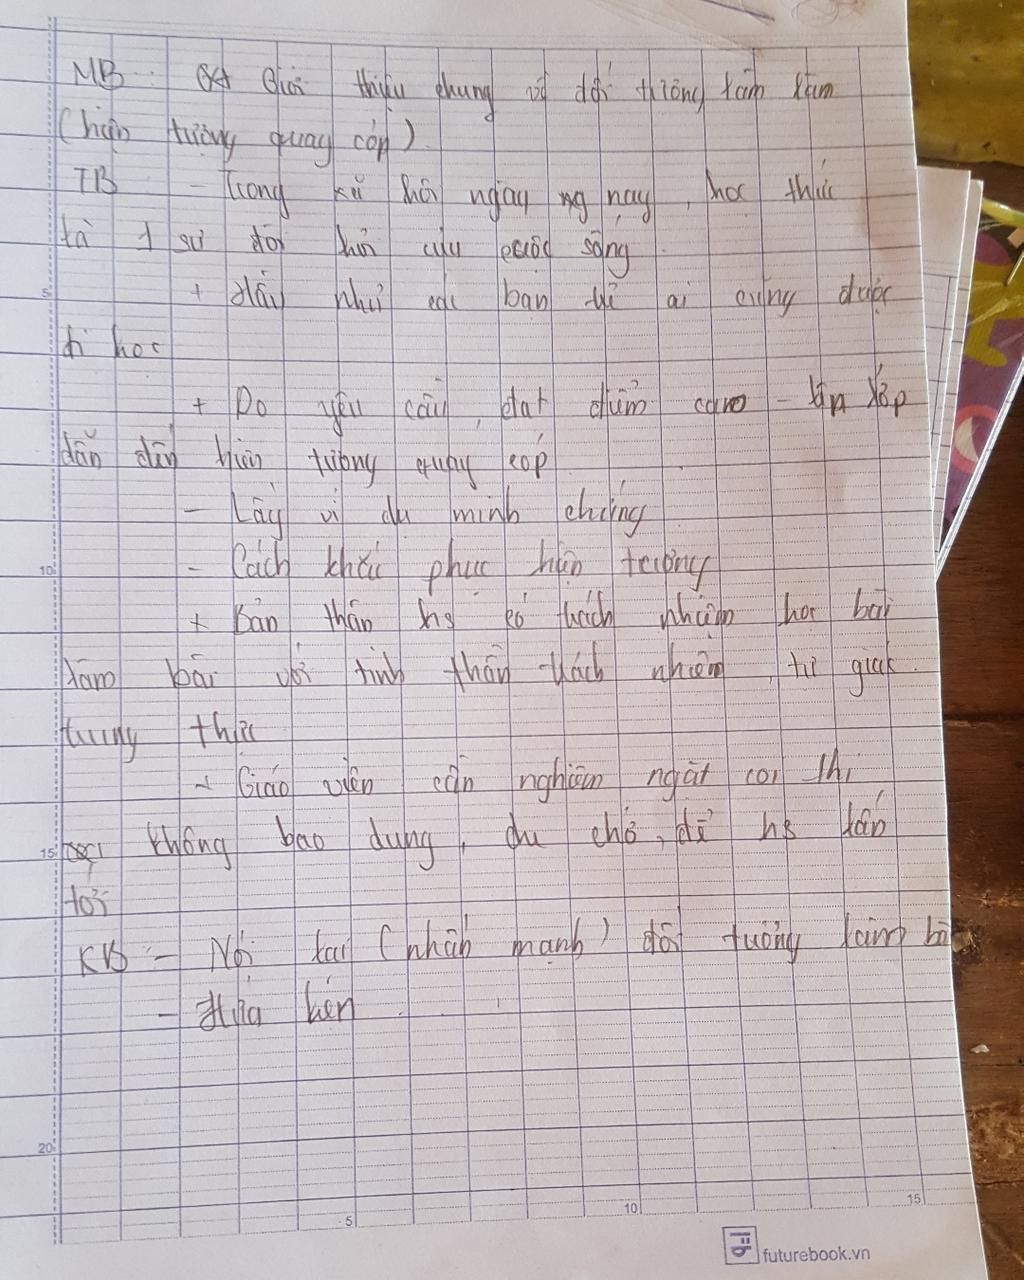 MB - Giới thiệu chung về đối tượng làm làm
(hiện tượng quay cóp)
TB - Trong xã hội ngày ng nay, học thức
là 1 sự đòi hỏi của cuộc sống.
+ Hầu như các bạn trẻ ai cũng được
đi học
+ Do yêu cầu, đạt điểm cao - lên lớp
dẫn đến hiện tượng quay cóp
- Lấy ví dụ minh chứng
- Cách khắc phục hiện tượng
+ Bản thân hs có trách nhiệm học bài
làm bài với tinh thần trách nhiệm, tự giác
trung thực
+ Giáo viên cần nghiêm ngặt coi thi
không bao dung, che, để hs tấn
tới
KB - Nói lại (nhấn mạnh) đối tượng làm bài
- Hứa hẹn
5
10
15
20
5
10
15
futurebook.vn